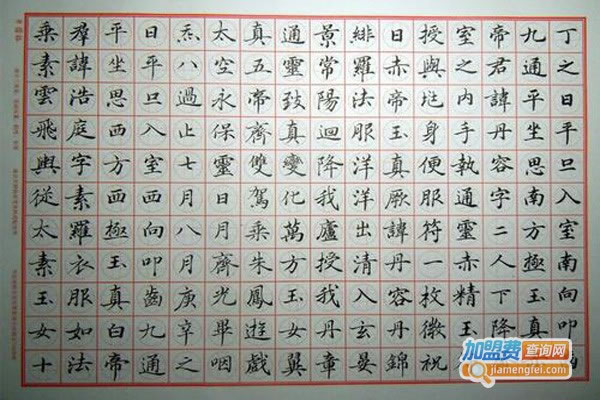 丁之日平旦入室南向叩
九通平坐思南方極玉真
帝君諱丹容字二人下降
室之内手執通靈赤精玉
授與身便服符一枚微祝
日赤帝玉真厥諱丹容丹錦
緋羅法服洋洋出清入玄晏
景常陽迴降我廬授我丹章
通靈致真變化萬方玉女翼
真五帝齊雙駕乘朱鳳遊戲
太空永保靈日月齊光畢咽
炁八過止七月八月庚辛之
日平旦入室西向叩齒九通
平坐思西方西極玉真白帝
羣諱浩庭字素羅衣服如法
乘素雲飛與從太素玉女十
加盟费查询网
jiamengfei.com